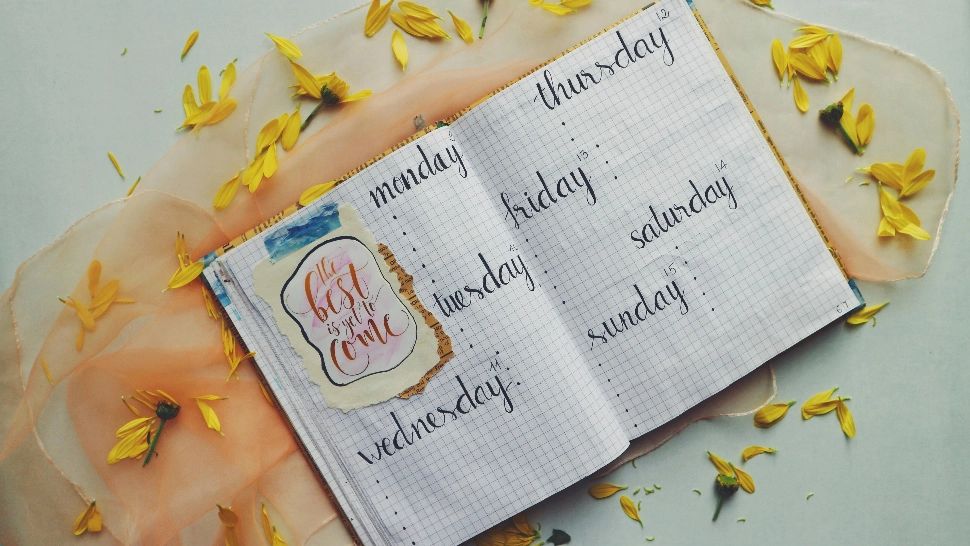 monday
the
best
is yet to
come
tuesday
wednesday
11
thursday
12
friday
13
saturday
14
sunday
15